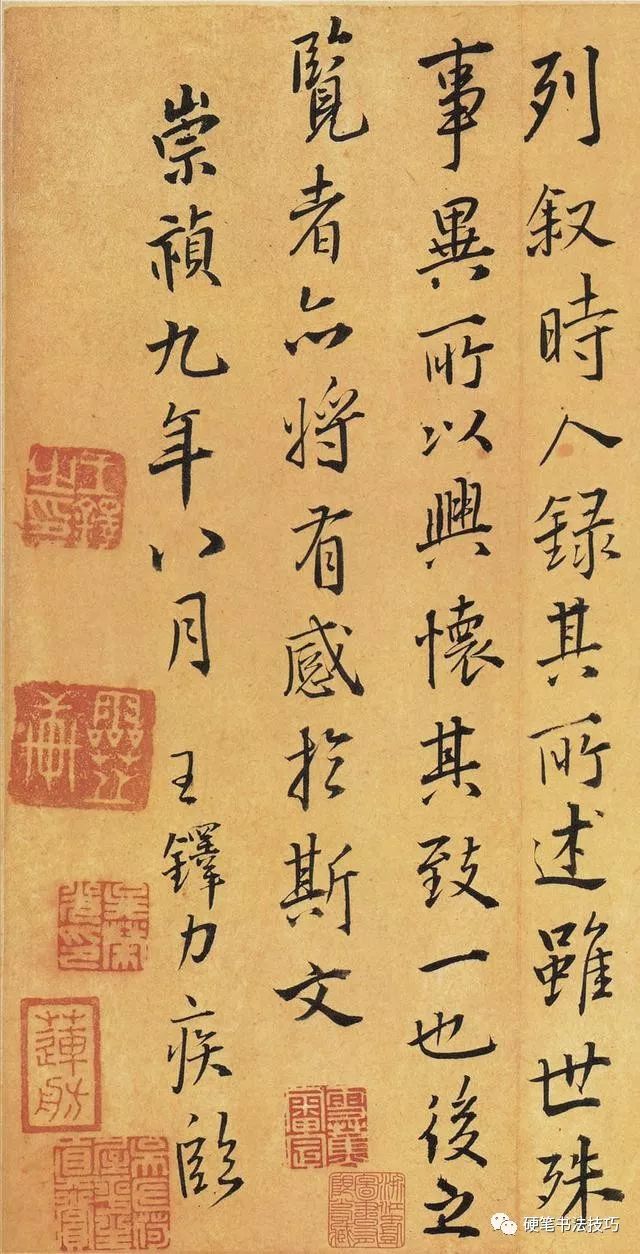 列叙時人録其所述雖世殊
事異所以興懷其致一也後之
覽者亦将有感於斯文
崇禎九年八月 王鐸力疾臨
王鐸之印
蓮舫
硬笔书法技巧